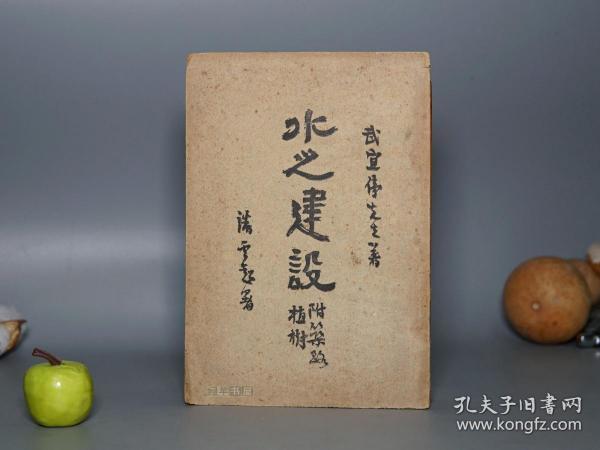 武宜停先生著
水之建設
附築路
植樹
潘雲超署
孔夫子旧书网
www.kongfz.com